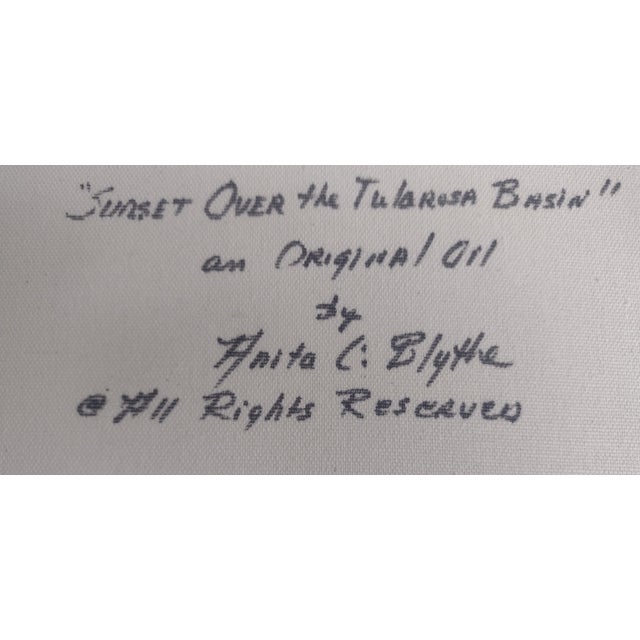 "Sunset Over the Tularosa Basin"
an Original Oil
by
Anita C. Blythe
© All Rights Reserved